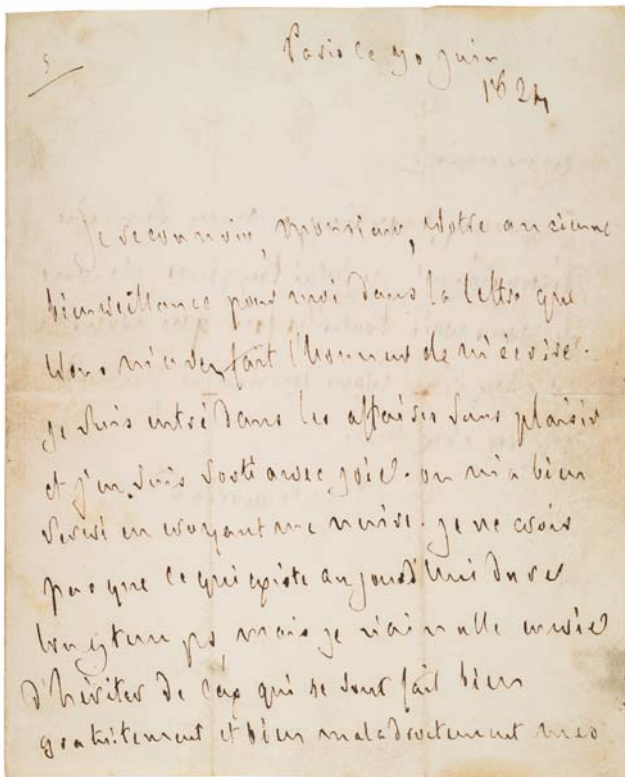 5
Paris ce 30 juin
1824
Je reconnois, Monsieur, votre ancienne
bienveillance pour moi dans la lettre que
vous m'avez fait l'honneur de m'écrire.
je suis entré dans les affaires sans plaisir
et j'en suis sorti avec joie. on m'a bien
servi en croyant me nuire. je ne crois
pas que ce qui existe aujourd'hui dure
longtemps, mais je n'ai nulle envie
d'hériter de ceux qui se sont fait bien
gratuitement et bien maladroitement mes